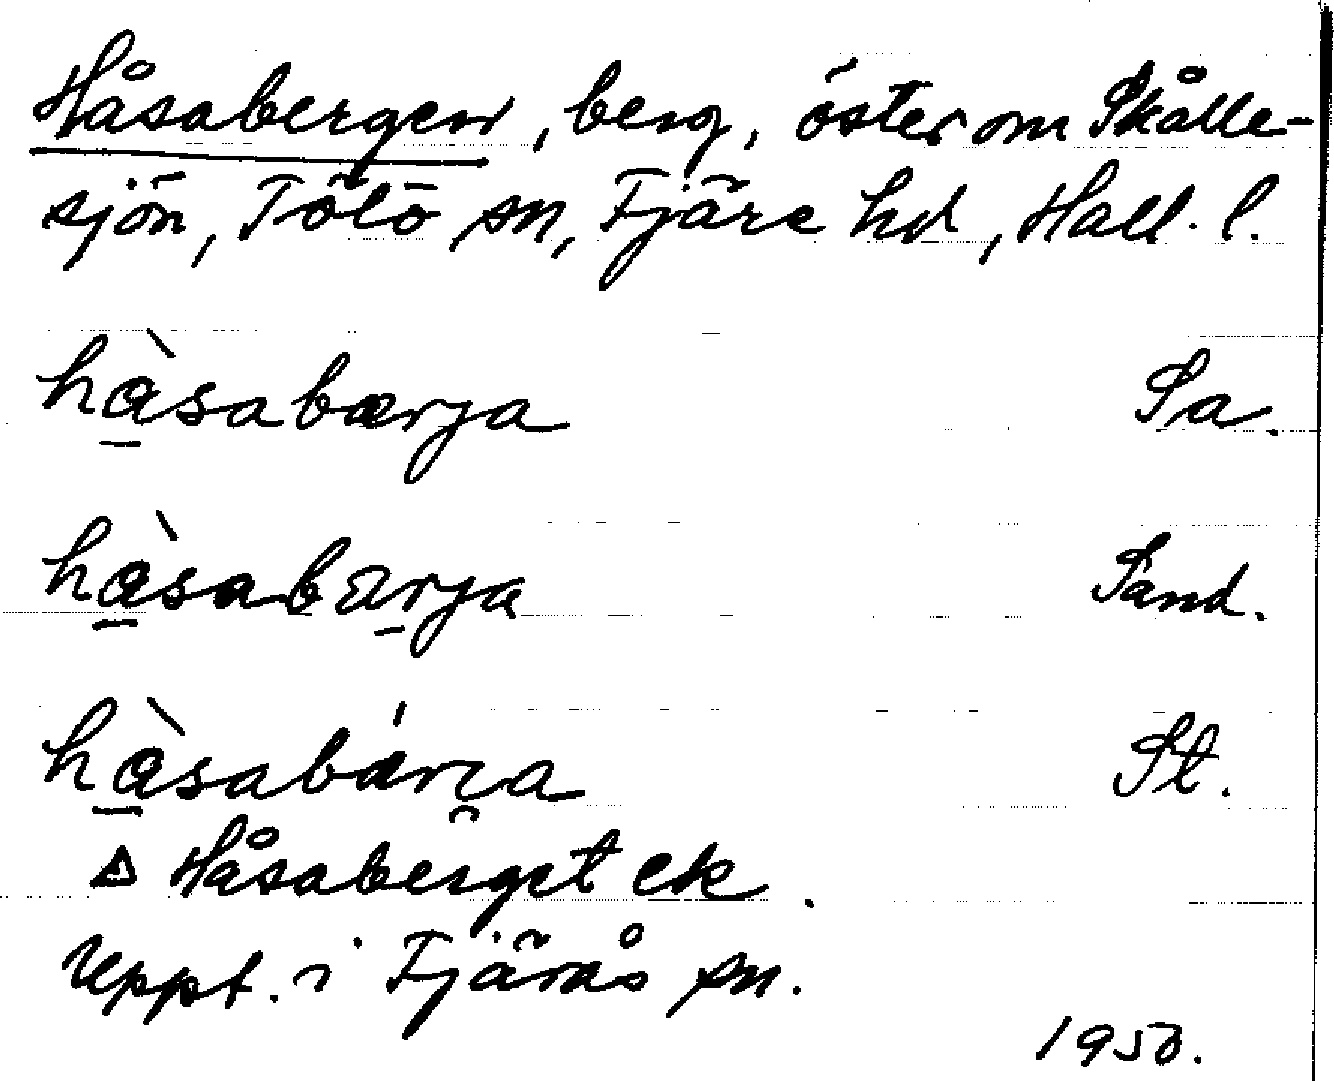 Håsabergen, berg, öster om Skålle-
sjön, Tölö sn, Fjäre hd, Hall. l.
hὰ̱sabærja Sa.
hὰ̱sabæṟja Sand.
hὰ̱sabάri̯a St.
Δ Håsaberget ek.
Uppt. i Fjärås sn.
1950.